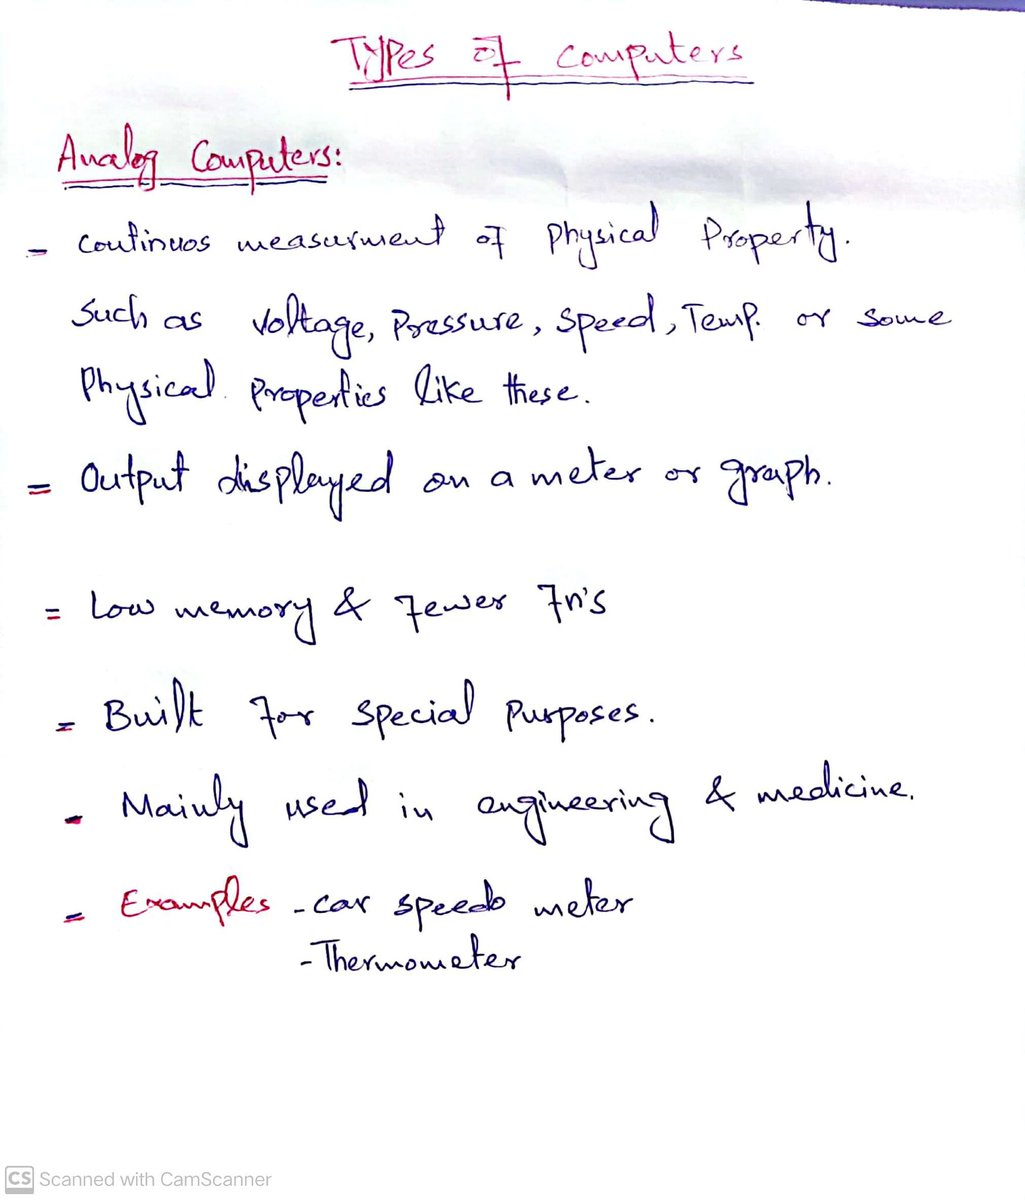 Types of Computers
Analog Computers:
- Continuos measurment of Physical Property.
Such as Voltage, Pressure, Speed, Temp. or Some
Physical Properties like these.
= Output displayed on a meter or graph.
= Low memory & Fewer Fn's
= Built For Special Purposes.
- Mainly used in engineering & medicine.
= Examples - car speedo meter
- Thermometer
CS Scanned with CamScanner